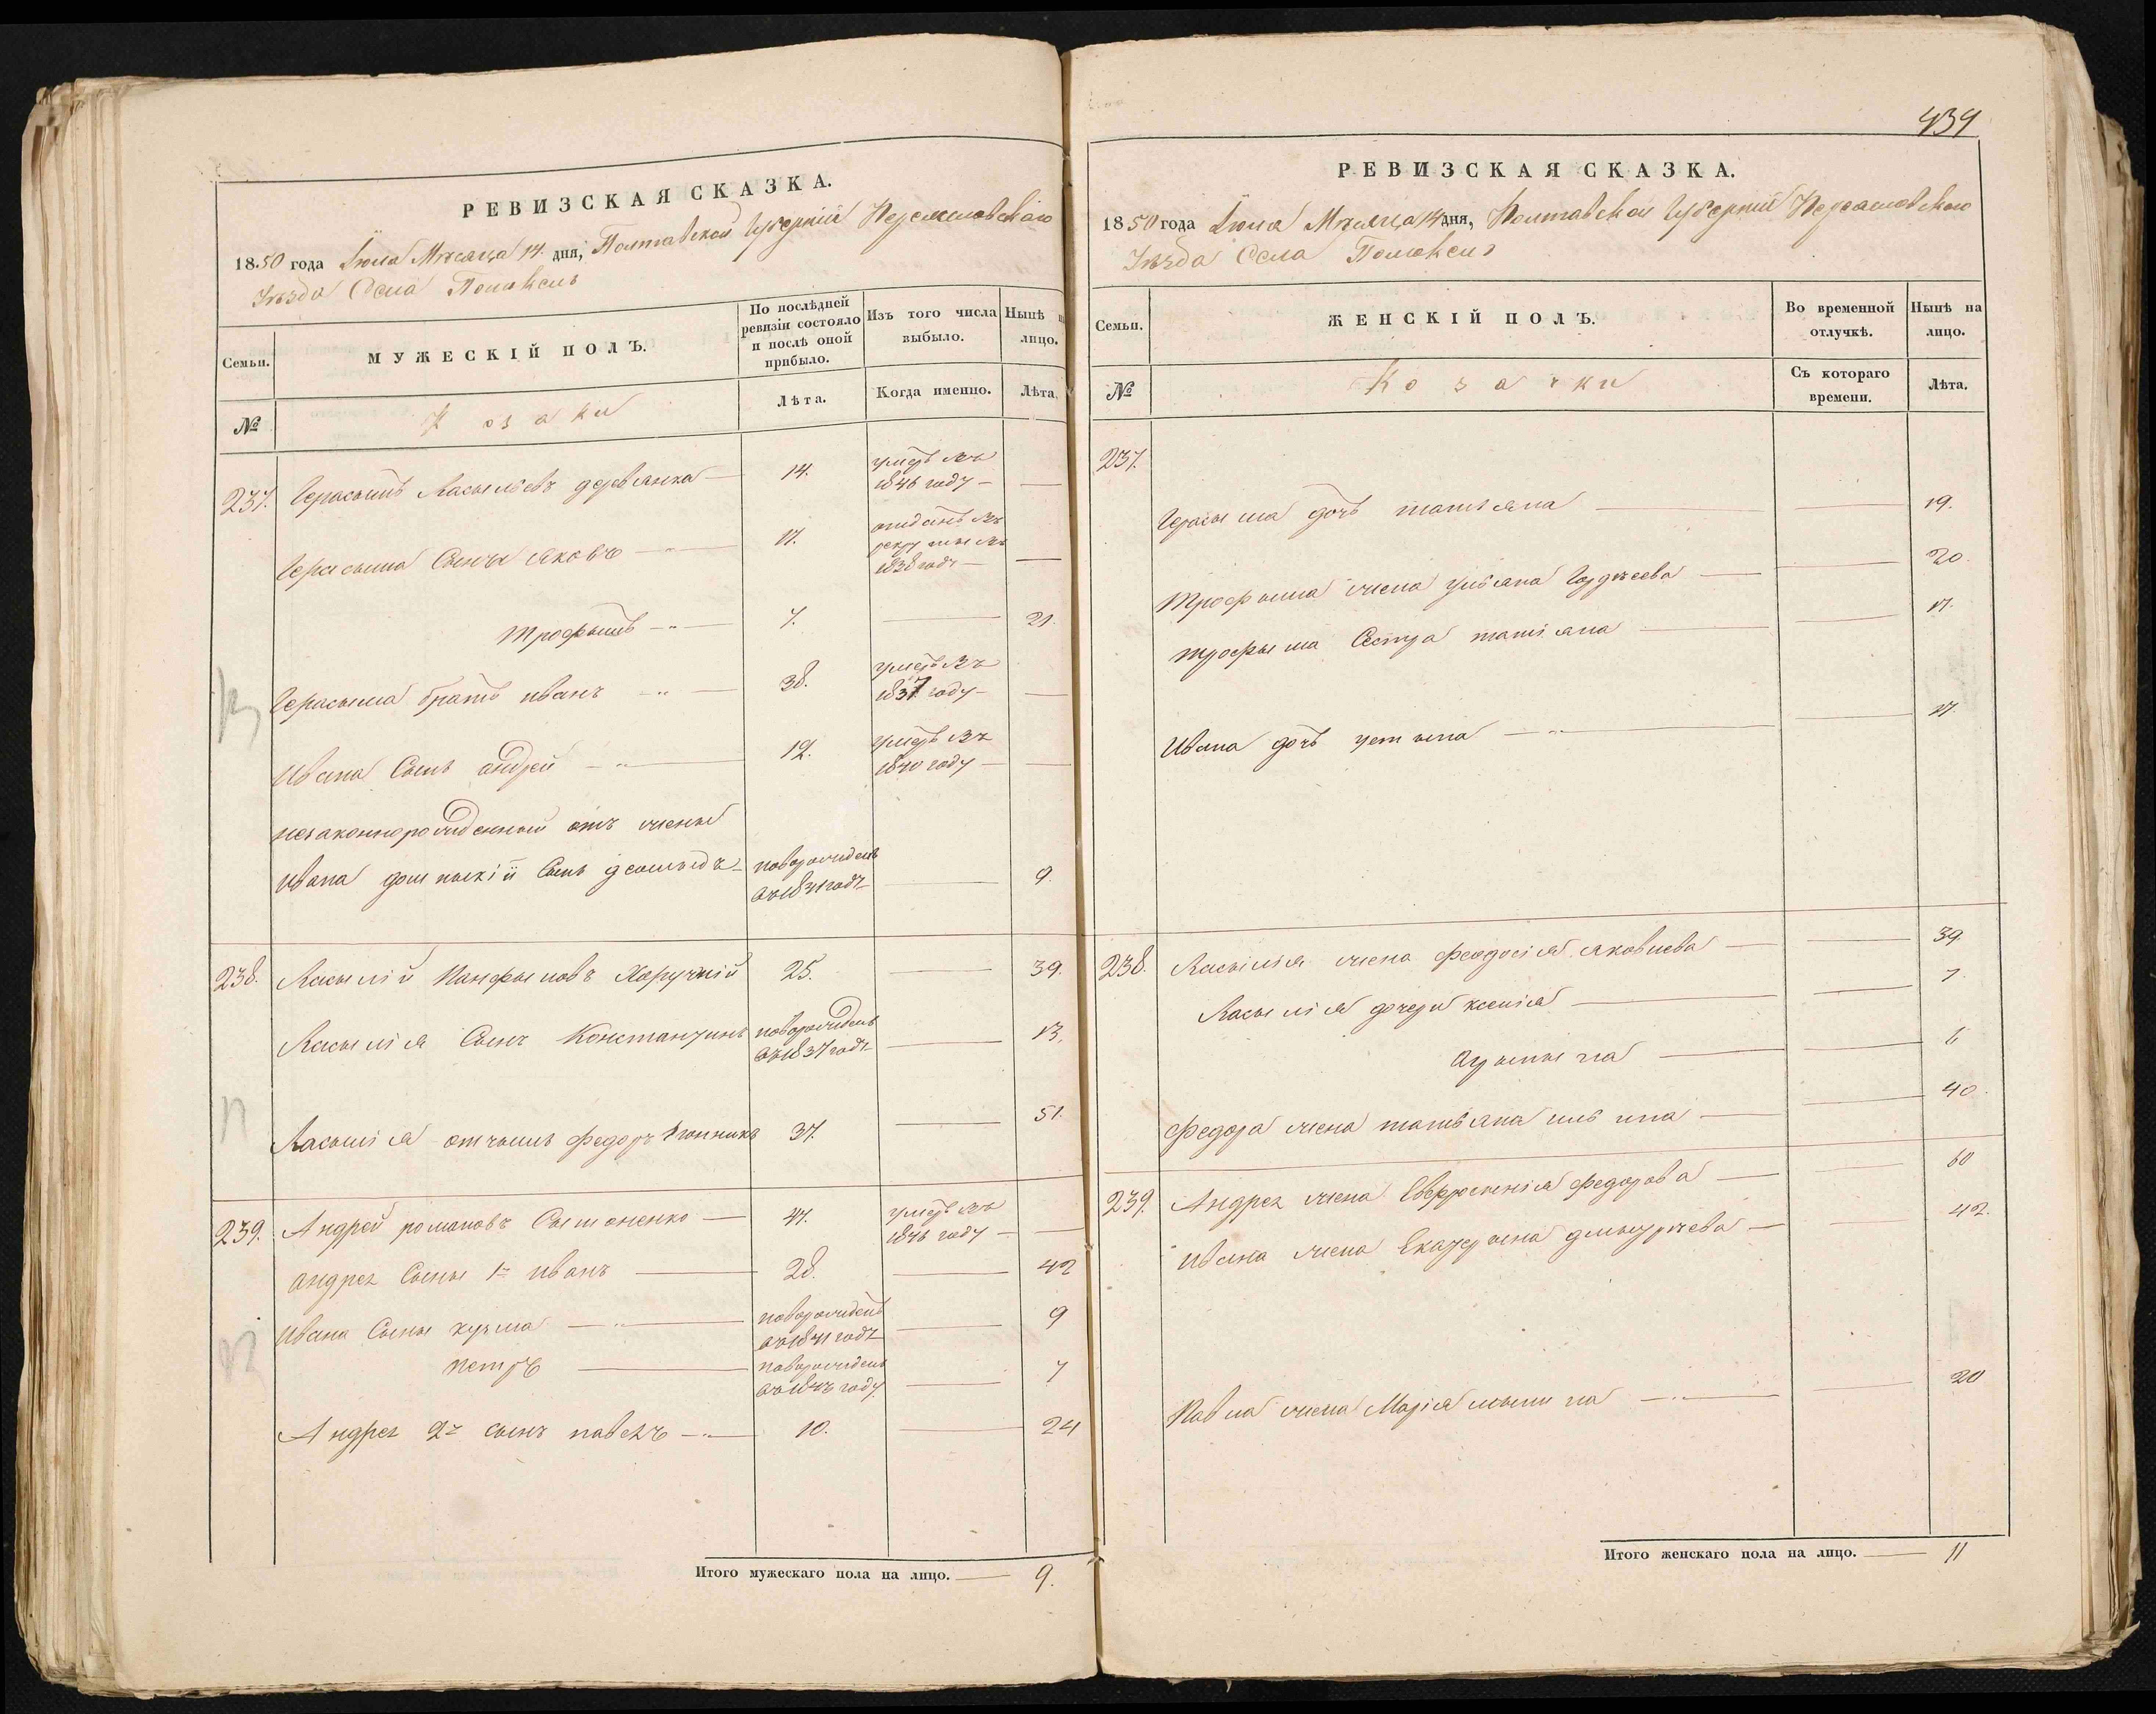 РЕВИЗСКАЯ СКАЗКА.
1850 года Июля Мѣсяца 14 дня, Полтавской Губерніи Переяславскаго
Уѣзда Села
Семьи.
МУЖЕСКІЙ ПОЛЪ.
По послѣдней ревизіи состояло и послѣ оной прибыло.
Изъ того числа выбыло.
Нынѣ на лицо.
№
Козаки
Лѣта.
Когда именно.
Лѣта.
237. Герасымъ Васыльевъ деревянка — 14. умеръ въ
1846 году — —
Герасыма Сынъ яковъ — 17. отданъ въ
рекруты въ
1838 годъ — —
трофымъ — 7. — 21.
Герасыма братъ иванъ — 38. умеръ въ
1837 году — —
Ивана Сынъ андрей — 12. умеръ въ
1840 году — —
незаконнорожденный отъ жены
ивана Сынъ — новорожденъ
въ 1841 годъ — 9.
238. Васылій Панфыловъ 25. — 39.
Васылія Сынъ Константинъ новорожденъ
въ 1837 годъ — 13.
Васылія отчымъ федоръ 37. — 51.
239. Андрей романовъ Сымоненко — 47. умеръ въ
1846 году — —
андрея Сыны 1й иванъ — 28. — 42
ивана Сыны кузма — новорожденъ
въ 1841 годъ — 9
петръ — новорожденъ
въ 1843 году — 7
Андрея 2й сынъ павелъ — 10. — 24
Итого мужескаго пола на лицо. — 9.
439
РЕВИЗСКАЯ СКАЗКА.
1850 года Июля Мѣсяца 14 дня, Полтавской Губерніи Переяславскаго
Уѣзда Села
Семьи.
ЖЕНСКІЙ ПОЛЪ.
Во временной отлучкѣ.
Нынѣ на лицо.
№
Козачки
Съ котораго времени.
Лѣта.
237.
Герасыма дочь татіяна — — 19.
трофыма жена уліяна Гордѣева — — 20.
трофыма Сестра татіяна — — 17.
Ивана дочь устына — — 17.
238. Васылія жена феодосія яковлева — — 39.
Васылія дочери ксенія — — 7.
— — 6
федора жена татьяна — — 40.
239. Андрея жена Евфросинія федорова — — 60
ивана жена Екатерына — — 42.
Павла жена Марія — — 20
Итого женскаго пола на лицо. — 11